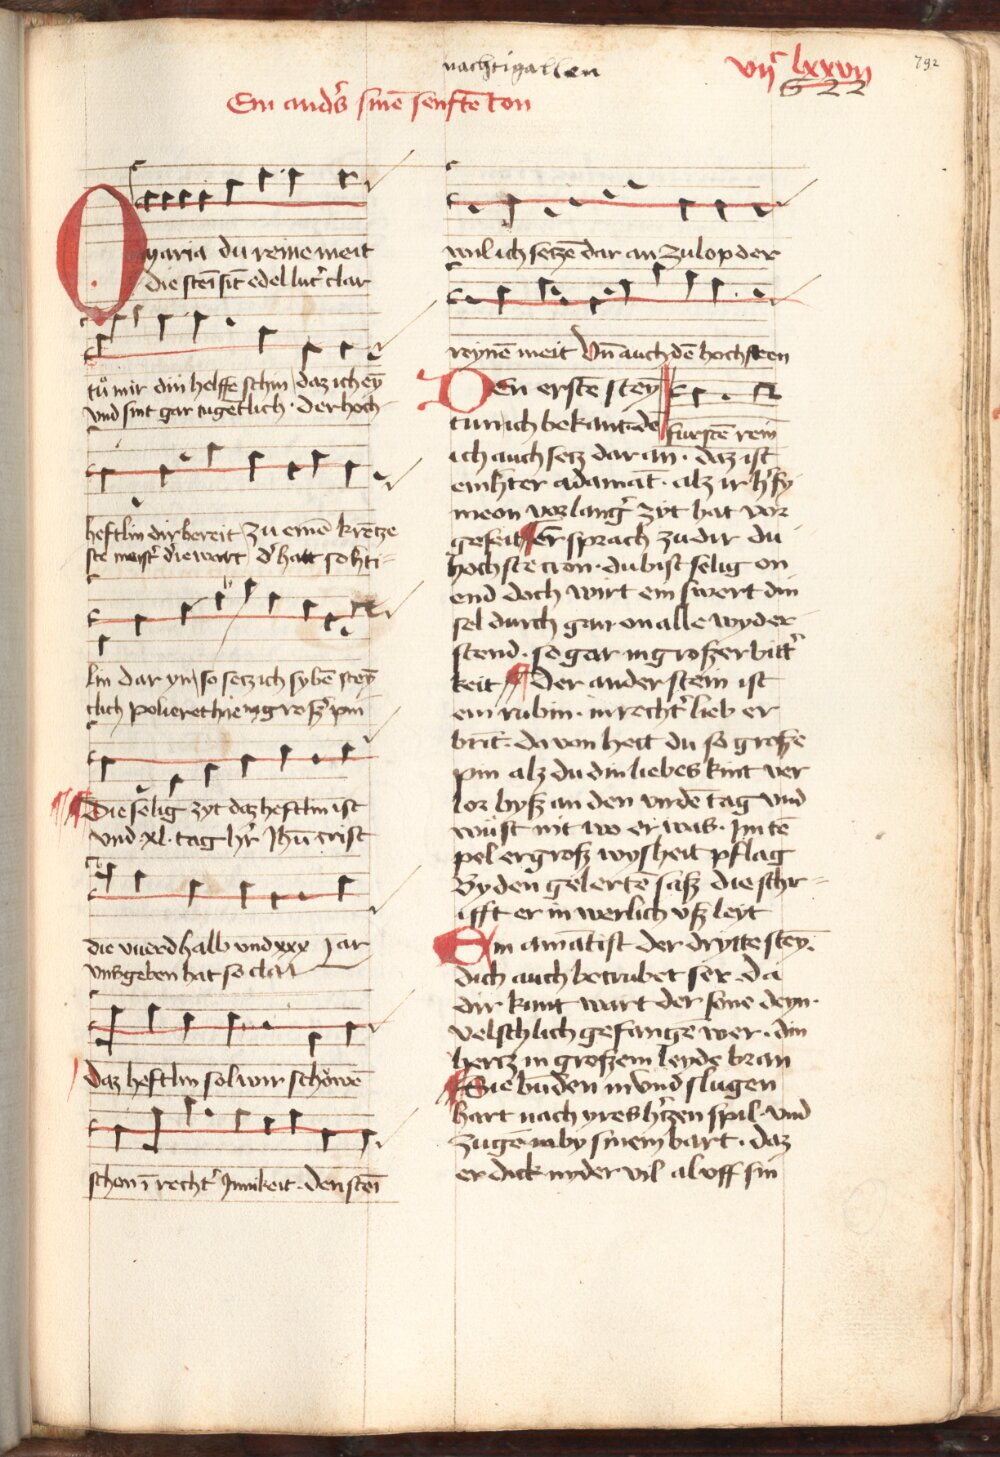 nachtigallen
vijc lxxvij
792
622
Ein anders sinē senftē ton
O maria du reine meit
die stei sit edel lutͬ clar
tů mir din helffe schin daz ich ey
vnd sint gar tugetlich · der hoch
heftlin dir bereit zu eine kretze
ste meistͬ die wart dͬ hatt so hti-
lin dar yn so setz ich sybē stey
tlich polieret hie in grosßͬ pin
Die selig zyt daz heftlin ist
vnd xl · tag hͬr Jhū crist
die vierdhalb vnd xxx Jar
vns geben hat so clar
daz heftlin sol wir schowē
schon ī rechtͬ Innikeit · den stei
wil ich setzē dar an zu lop der
reynē meit Vn auch dē hochsten
DEn erste stey
tun ich bekant · dē
furstē rein
ich auch setz dar an · daz ist
ein hter adamāt · alz ir hͬ sy
meon vor langͬ zyt hat vor
geseit Er sprach zu dir du
hochste cron · du bist selig on
end doch wirt ein swert din
sel durch gan on alle wyder
stend · so gar in großer bittͬ
keit Der ander stein ist
ein rubin · in rechtͬ lieb er
brīt · da von heit du so große
pin alz du din liebes kint ver
lor byß an den virdē tag vnd
wüst nit wo er was · Im tē
pel er groß wysheit pflag
By den gelertē saß die schr=
ifft er in werlich vß leyt
Ein amatist der drytte stey ·
dich auch betrubet ser · da
dir kunt wart der sone deyn ·
velschlich gefangē wer · din
hertz in großem leyde bran
Sie buden in vnd slugen
hart nach yres hͬtzen spil · vnd
zugē in by sinem bart · daz
er dick nyder vil al vff sin